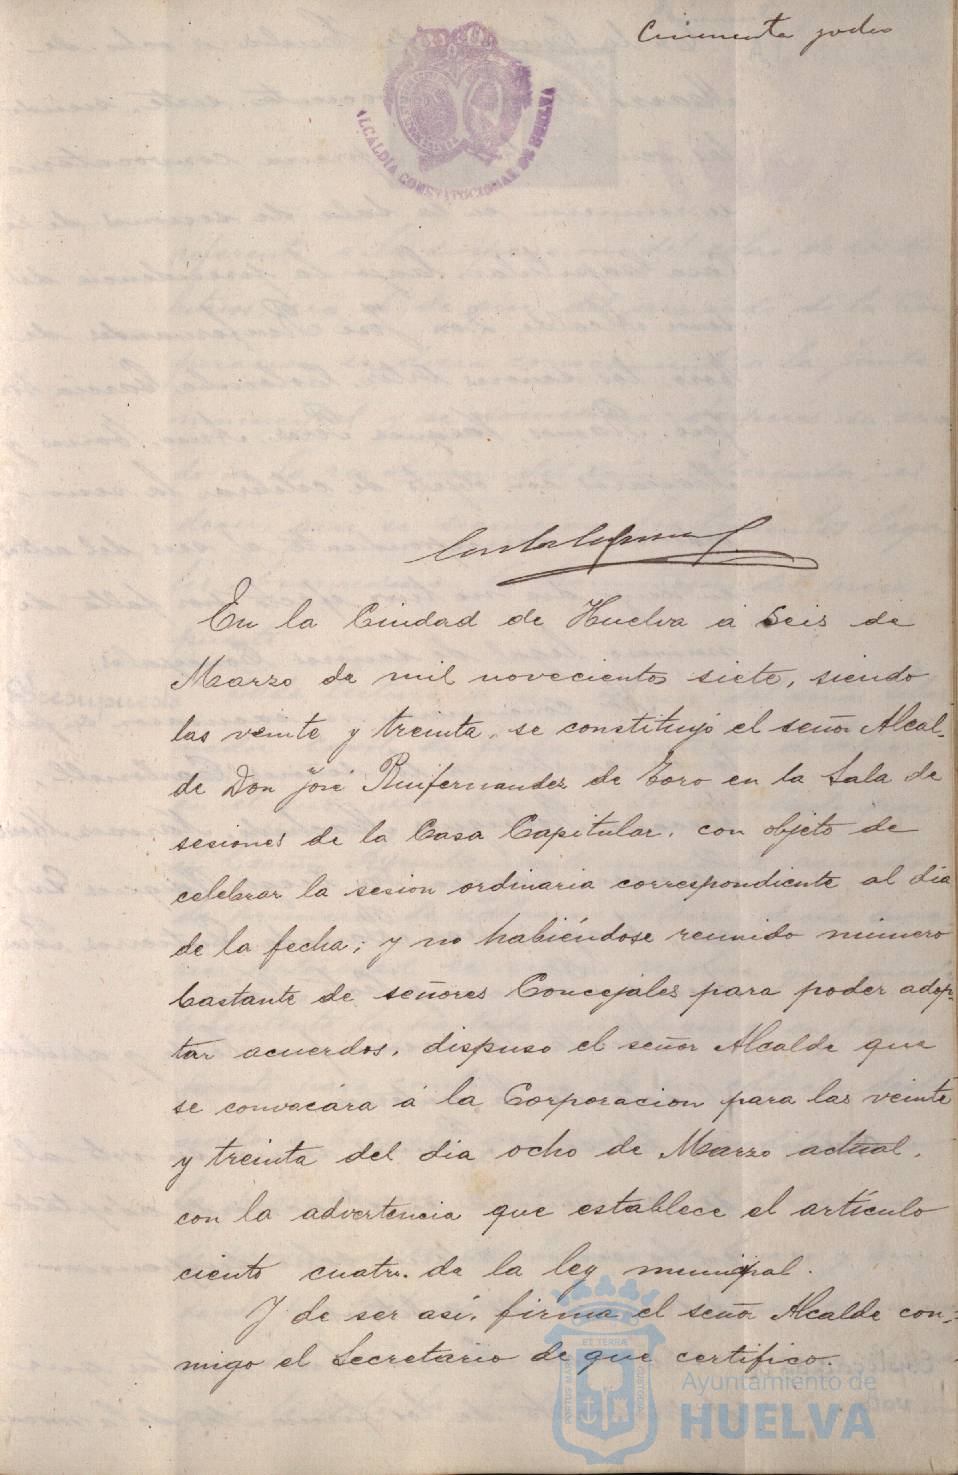 Cincuenta y ocho
ALCALDIA CONSTITUCIONAL DE HUELVA
En la Ciudad de Huelva á seis de
Marzo de mil novecientos siete, siendo
las veinte y treinta, se constituyó el señor Alcal-
de Don José Ruifernandez de Toro en la Sala de
sesiones de la Casa Capitular, con objeto de
celebrar la sesion ordinaria correspondiente al dia
de la fecha; y no habiéndose reunido número
bastante de señores Concejales para poder adop-
tar acuerdos, dispuso el señor Alcalde que
se convocára á la Corporacion para las veinte
y treinta del dia ocho de Marzo actual,
con la advertencia que establece el artículo
ciento cuatro de la ley municipal.
Y de ser así, firma el señor Alcalde con-
migo el Secretario de que certifico.
Ayuntamiento de
HUELVA